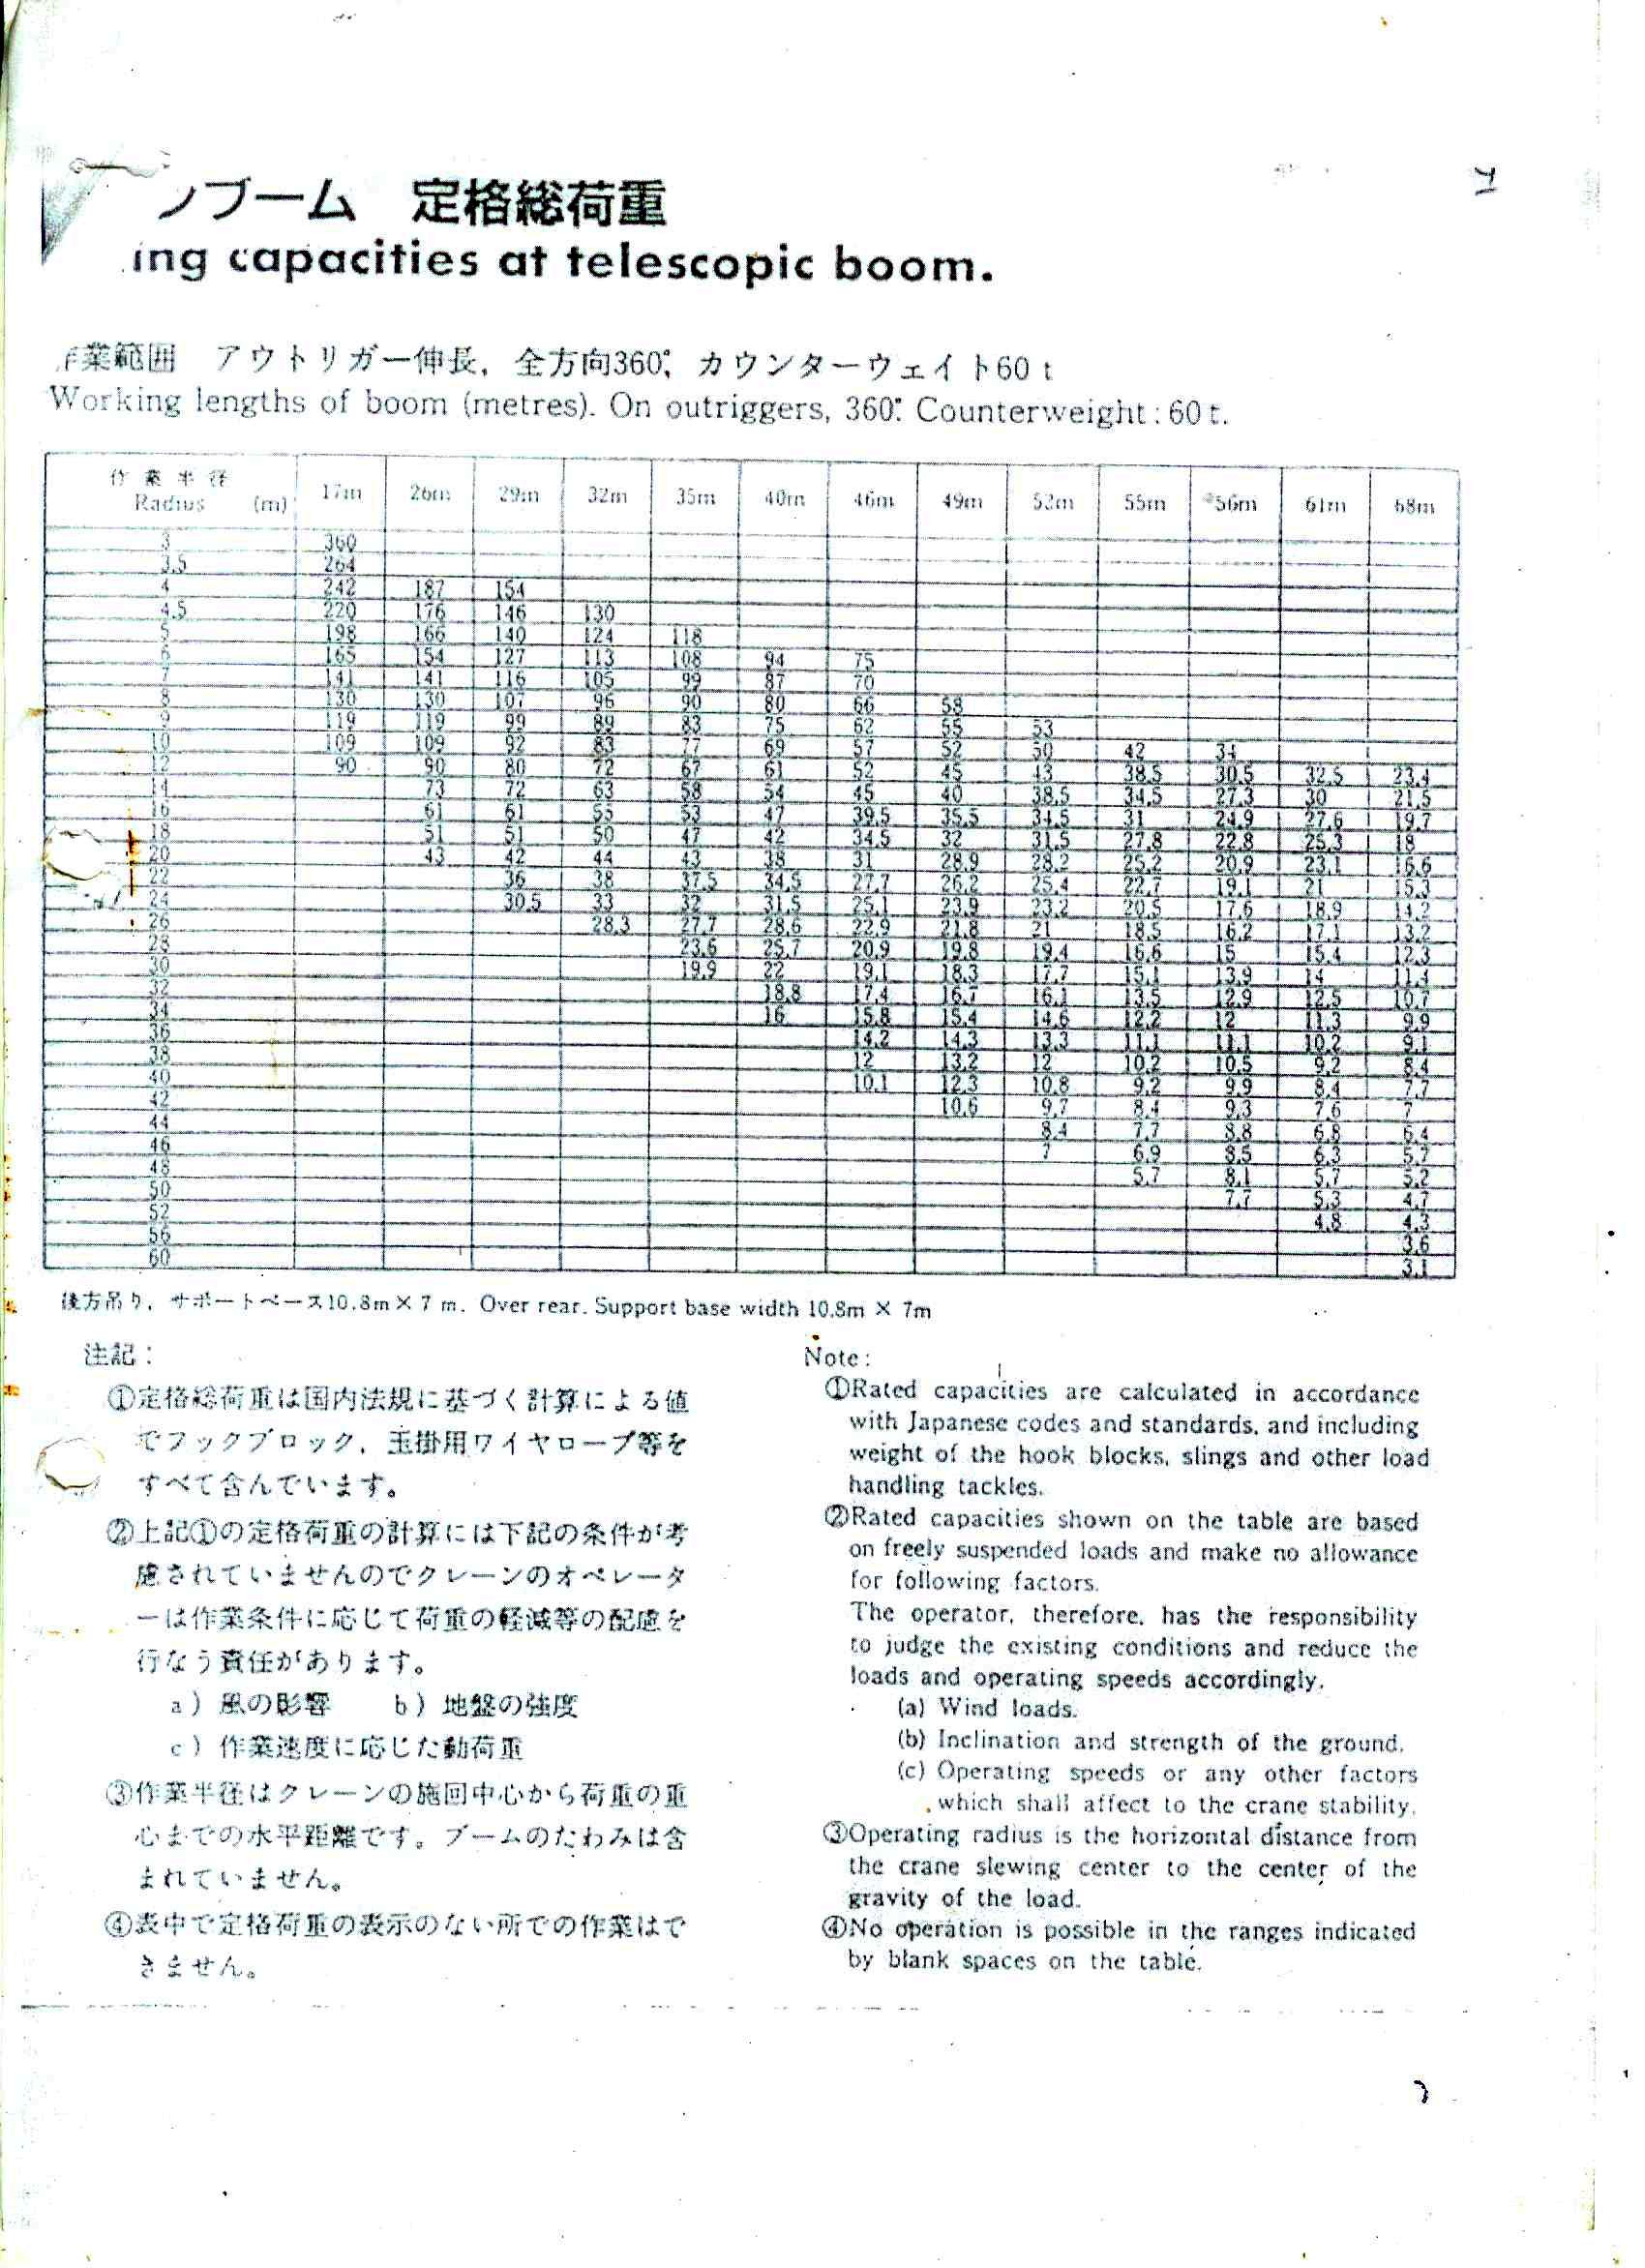 ンブーム 定格総荷重
ing capacities at telescopic boom.
作業範囲 アウトリガー伸長, 全方向360°, カウンターウェイト60 t
Working lengths of boom (metres). On outriggers, 360°. Counterweight : 60 t.
作業半径
Radius (m) 17m 26m 29m 32m 35m 40m 46m 49m 52m 55m *56m 61m 68m
3 360
3.5 264
4 242 187 154
4.5 220 176 146 130
5 198 166 140 124 118
6 165 154 127 113 108 94 75
7 141 141 116 105 99 87 70
8 130 130 107 96 90 80 66 58
9 119 119 99 89 83 75 62 55 53
10 109 109 92 83 77 69 57 52 50 42 34
12 90 90 80 72 67 61 52 45 43 38.5 30.5 32.5 23.4
14 73 72 63 58 54 45 40 38.5 34.5 27.3 30 21.5
16 61 61 55 53 47 39.5 35.5 34.5 31 24.9 27.6 19.7
18 51 51 50 47 42 34.5 32 31.5 27.8 22.8 25.3 18
20 43 42 44 43 38 31 28.9 28.2 25.2 20.9 23.1 16.6
22 36 38 37.5 34.5 27.7 26.2 25.4 22.7 19.1 21 15.3
24 30.5 33 32 31.5 25.1 23.9 23.2 20.5 17.6 18.9 14.2
26 28.3 27.7 28.6 22.9 21.8 21 18.5 16.2 17.1 13.2
28 23.6 25.7 20.9 19.8 19.4 16.6 15 15.4 12.3
30 19.9 22 19.1 18.3 17.7 15.1 13.9 14 11.4
32 18.8 17.4 16.7 16.1 13.5 12.9 12.5 10.7
34 16 15.8 15.4 14.6 12.2 12 11.3 9.9
36 14.2 14.3 13.3 11.1 11.1 10.2 9.1
38 12 13.2 12 10.2 10.5 9.2 8.4
40 10.1 12.3 10.8 9.2 9.9 8.4 7.7
42 10.6 9.7 8.4 9.3 7.6 7
44 8.4 7.7 8.8 6.8 6.4
46 7 6.9 8.5 6.3 5.7
48 5.7 8.1 5.7 5.2
50 7.7 5.3 4.7
52 4.8 4.3
56 3.6
60 3.1
後方吊り, サポートベース10.8m × 7 m. Over rear. Support base width 10.8m × 7m
注記:
①定格総荷重は国内法規に基づく計算による値
でフックブロック, 玉掛用ワイヤロープ等を
すべて含んでいます。
②上記①の定格荷重の計算には下記の条件が考
慮されていませんのでクレーンのオペレータ
ーは作業条件に応じて荷重の軽減等の配慮を
行なう責任があります。
a) 風の影響 b) 地盤の強度
c) 作業速度に応じた動荷重
③作業半径はクレーンの施回中心から荷重の重
心までの水平距離です。ブームのたわみは含
まれていません。
④表中で定格荷重の表示のない所での作業はで
きません。
Note:
①Rated capacities are calculated in accordance
with Japanese codes and standards, and including
weight of the hook blocks, slings and other load
handling tackles.
②Rated capacities shown on the table are based
on freely suspended loads and make no allowance
for following factors.
The operator, therefore, has the responsibility
to judge the existing conditions and reduce the
loads and operating speeds accordingly.
(a) Wind loads.
(b) Inclination and strength of the ground.
(c) Operating speeds or any other factors
which shall affect to the crane stability.
③Operating radius is the horizontal distance from
the crane slewing center to the center of the
gravity of the load.
④No operation is possible in the ranges indicated
by blank spaces on the table.